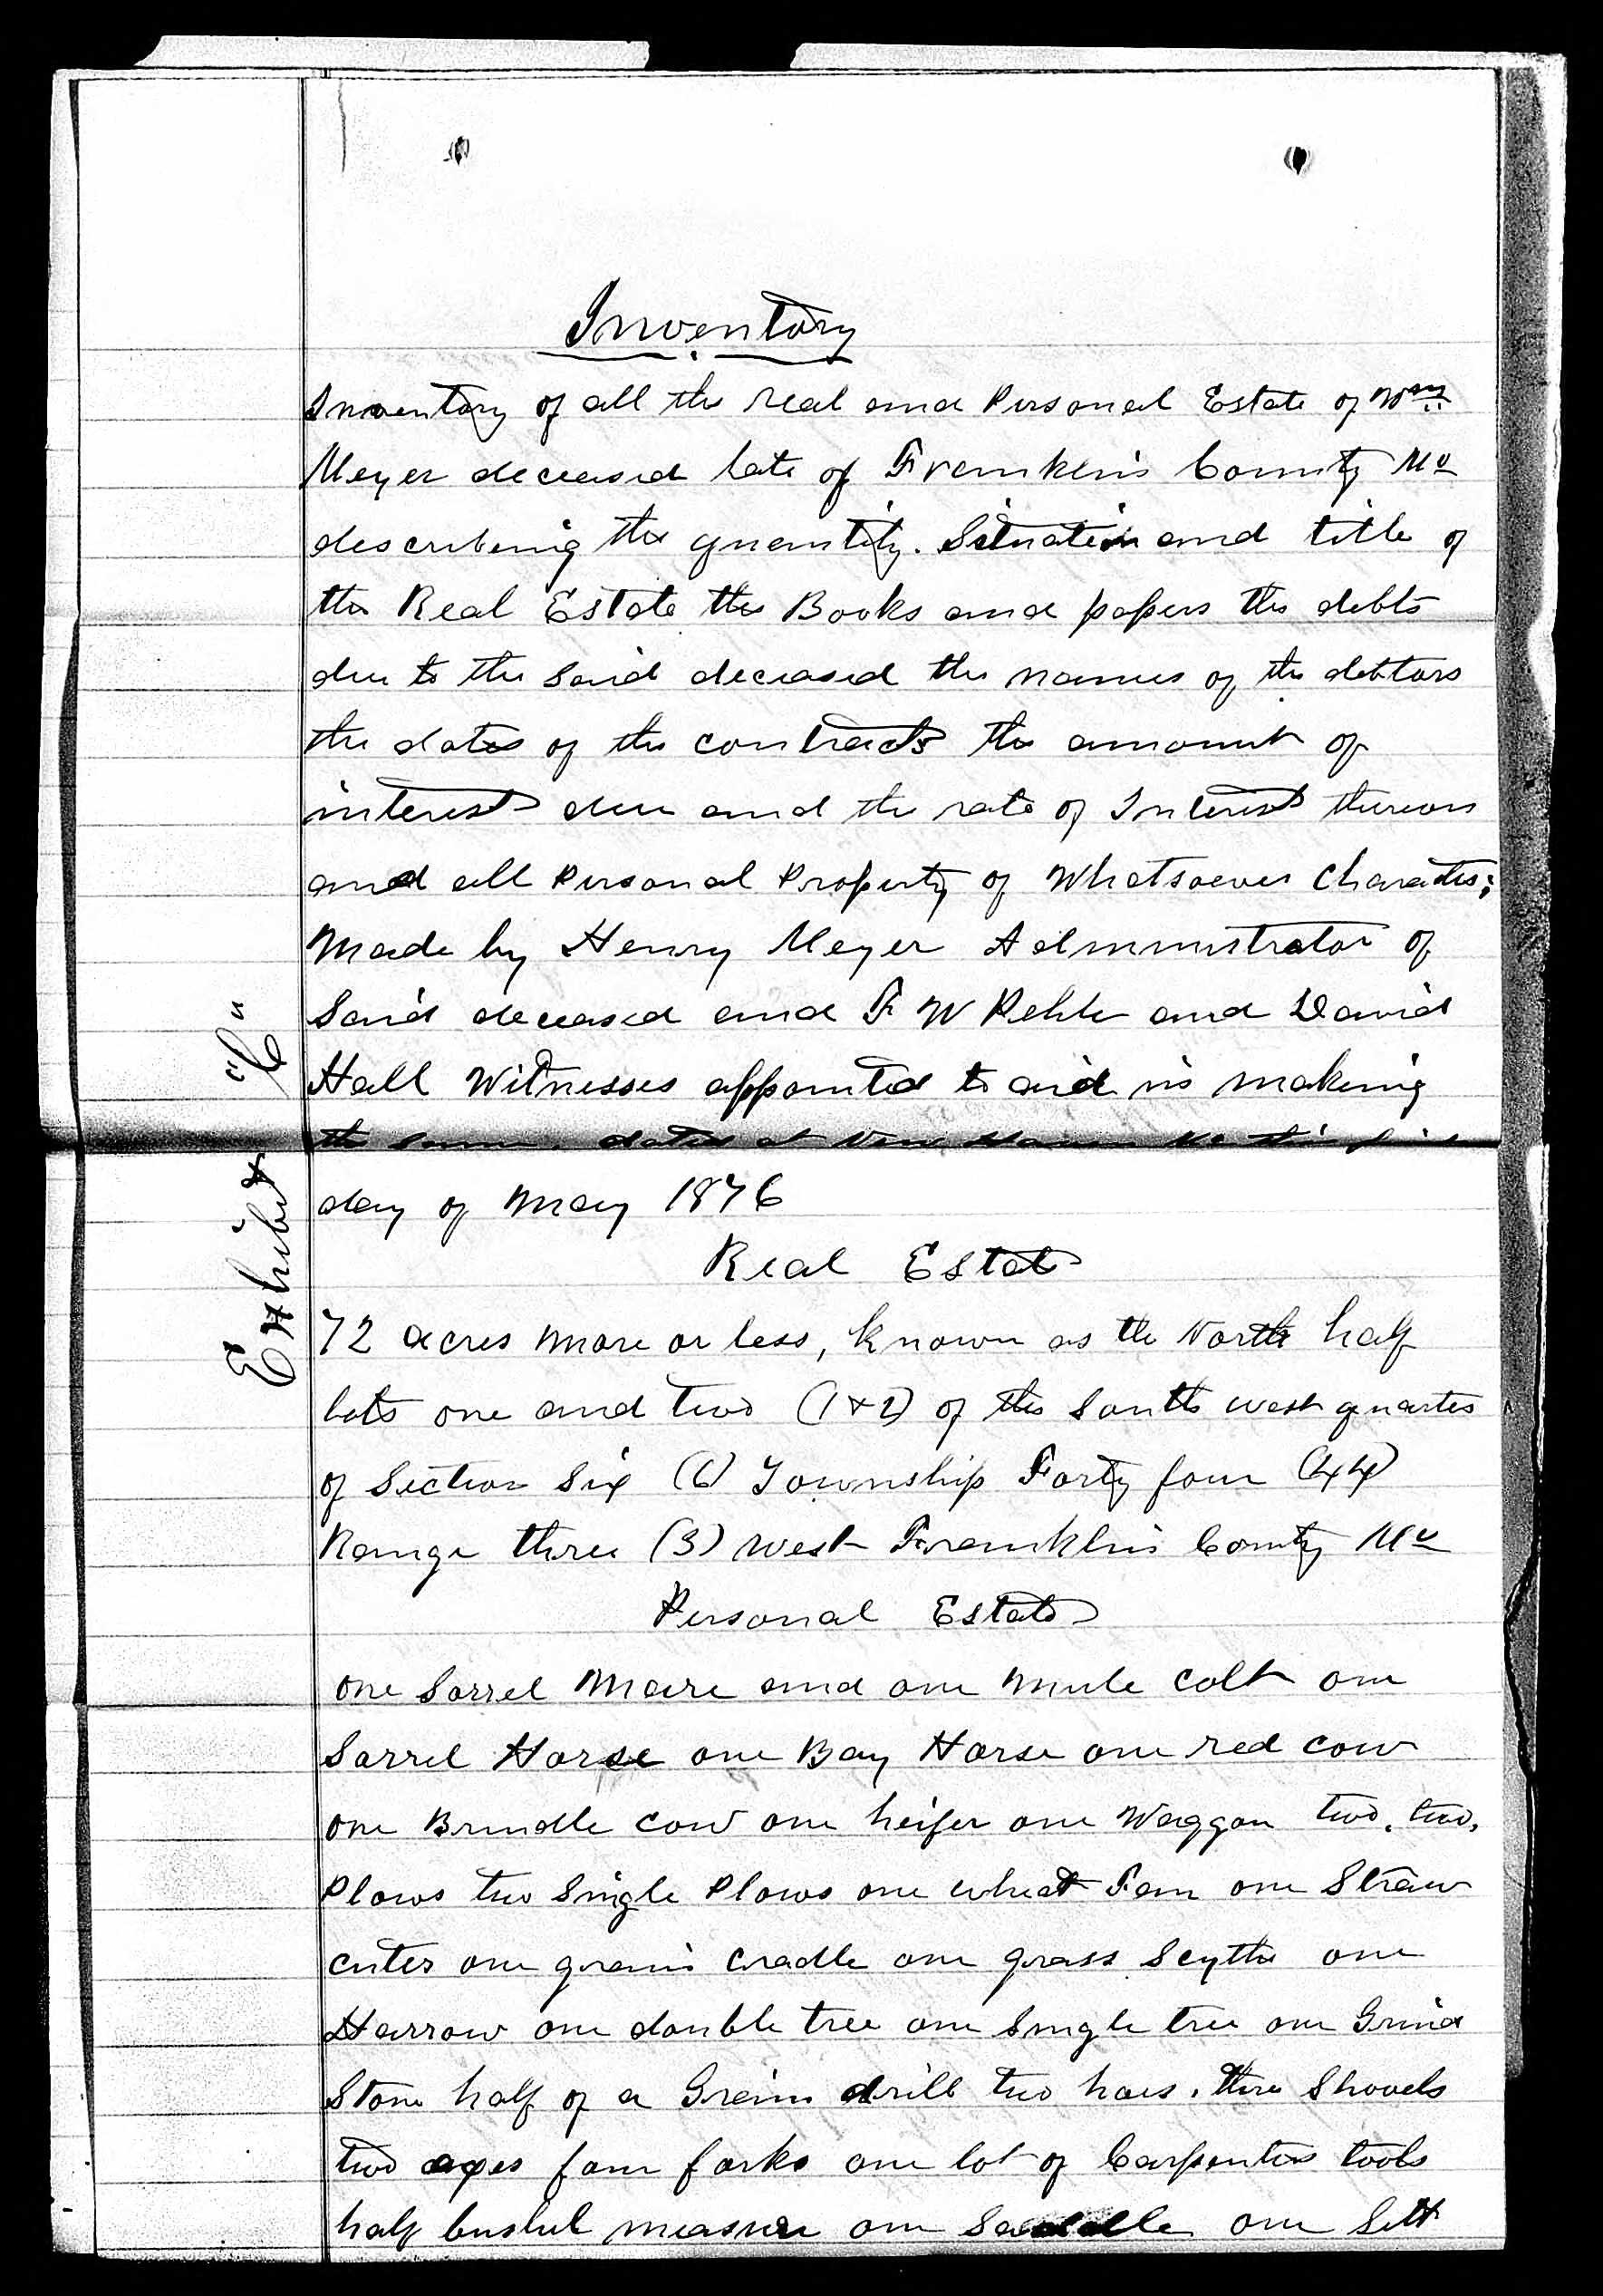 Inventory
Inventory of all the real and Personal Estate of Wm
Meyer deceased late of Franklin County Mo
describing the quantity. Situation and title of
the Real Estate the Books and papers the debts
due to the said deceased the names of the debtors
the dates of the contracts the amount of
interest due and the rate of Interest thereon
and all Personal Property of Whatsoever Character;
Made by Henry Meyer Administrator of
Said deceased and F W Pehle and David
Hall Witnesses appointed to aid in making
the same. dated at New Haven Mo this
day of May 1876
Real Estate
72 acres more or less, known as the North half
lots one and two (1+2) of the South west quarter
of Section Six (6) Township Forty four (44)
Range three (3) West Franklin County Mo
Personal Estate
one Sorrel Mare and one Mule colt one
Sorrel Horse one Bay Horse one red cow
one Brindle cow one heifer one Waggon two, two,
Plows two Single Plows one wheat Fan one Straw
cuter one grain Cradle one grass Scythe one
Harrow one double tree one Single tree one Grind
Stone half of a Grain drill two hoes. three Shovels
two axes four forks one lot of Carpenter tools
half bushel measure one Saddle one Sett
Exhibit "C"